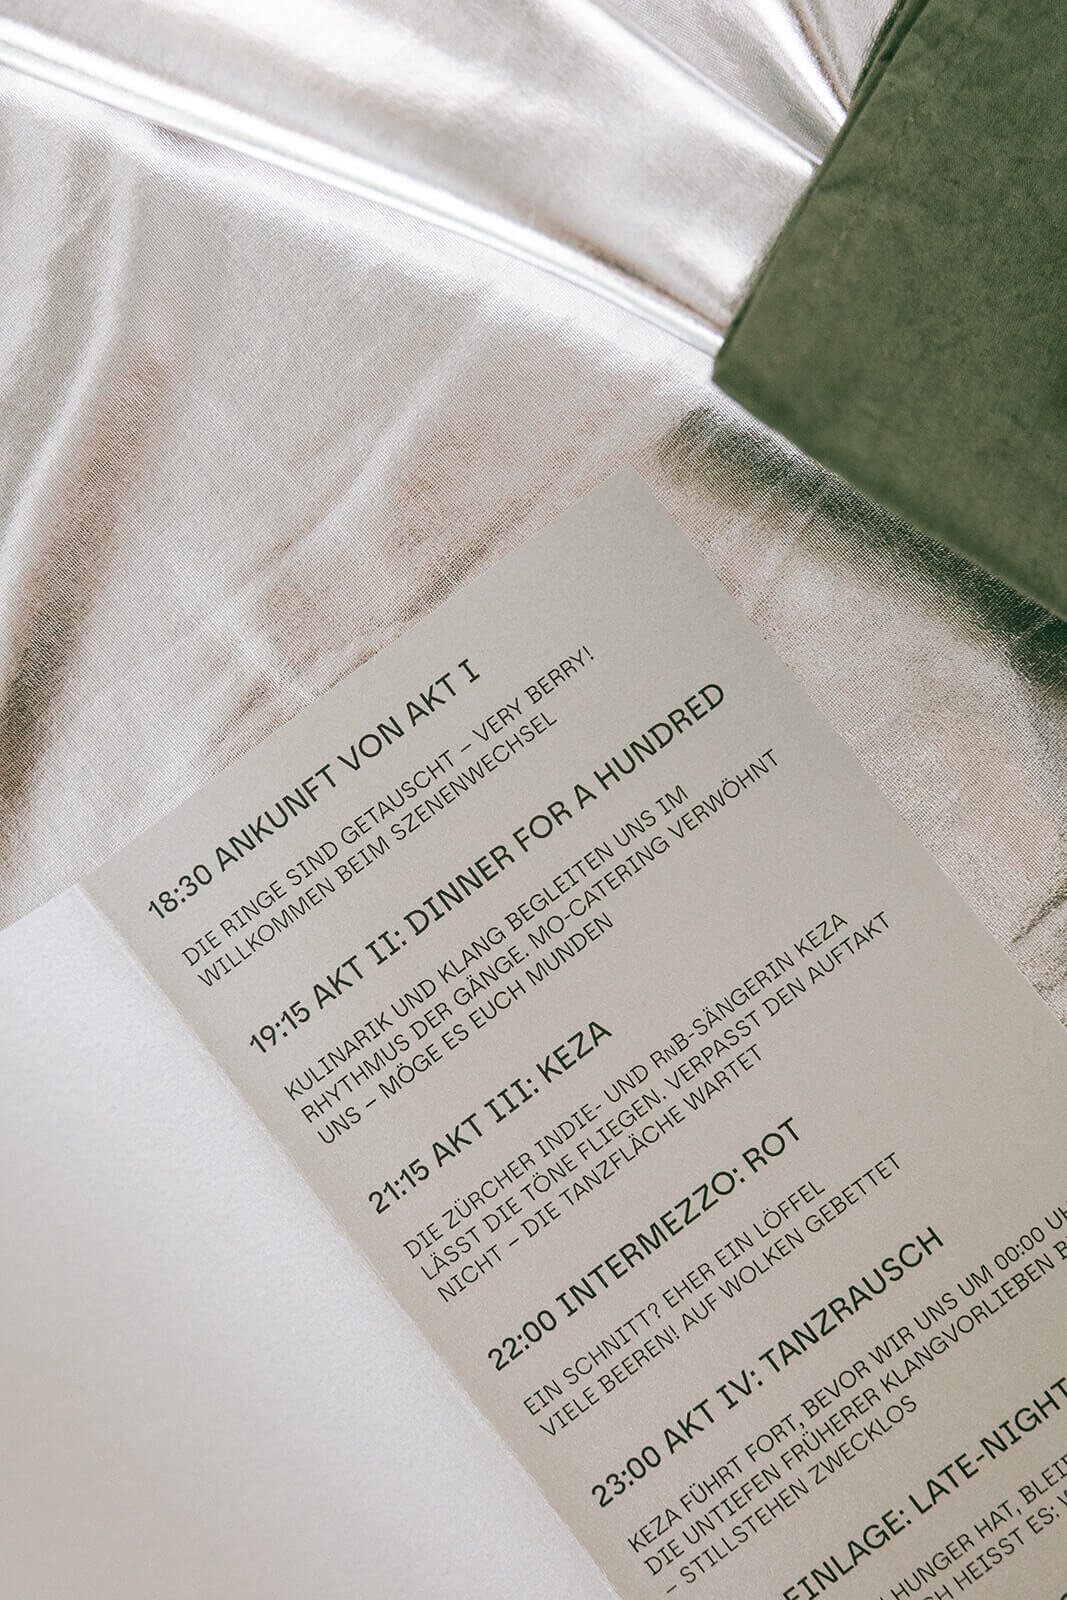 18:30 ANKUNFT VON AKT I
DIE RINGE SIND GETAUSCHT – VERY BERRY!
WILLKOMMEN BEIM SZENENWECHSEL
19:15 AKT II: DINNER FOR A HUNDRED
KULINARIK UND KLANG BEGLEITEN UNS IM
RHYTHMUS DER GÄNGE. MO-CATERING VERWÖHNT
UNS – MÖGE ES EUCH MUNDEN
21:15 AKT III: KEZA
DIE ZÜRCHER INDIE- UND RnB-SÄNGERIN KEZA
LÄSST DIE TÖNE FLIEGEN. VERPASST DEN AUFTAKT
NICHT – DIE TANZFLÄCHE WARTET
22:00 INTERMEZZO: ROT
EIN SCHNITT? EHER EIN LÖFFEL
VIELE BEEREN! AUF WOLKEN GEBETTET
23:00 AKT IV: TANZRAUSCH
KEZA FÜHRT FORT, BEVOR WIR UNS UM 00:00
DIE UNTIEFEN FRÜHERER KLANGVORLIEBEN
– STILLSTEHEN ZWECKLOS
EINLAGE: LATE-NIGHT
HUNGER HAT,
HEISST ES: